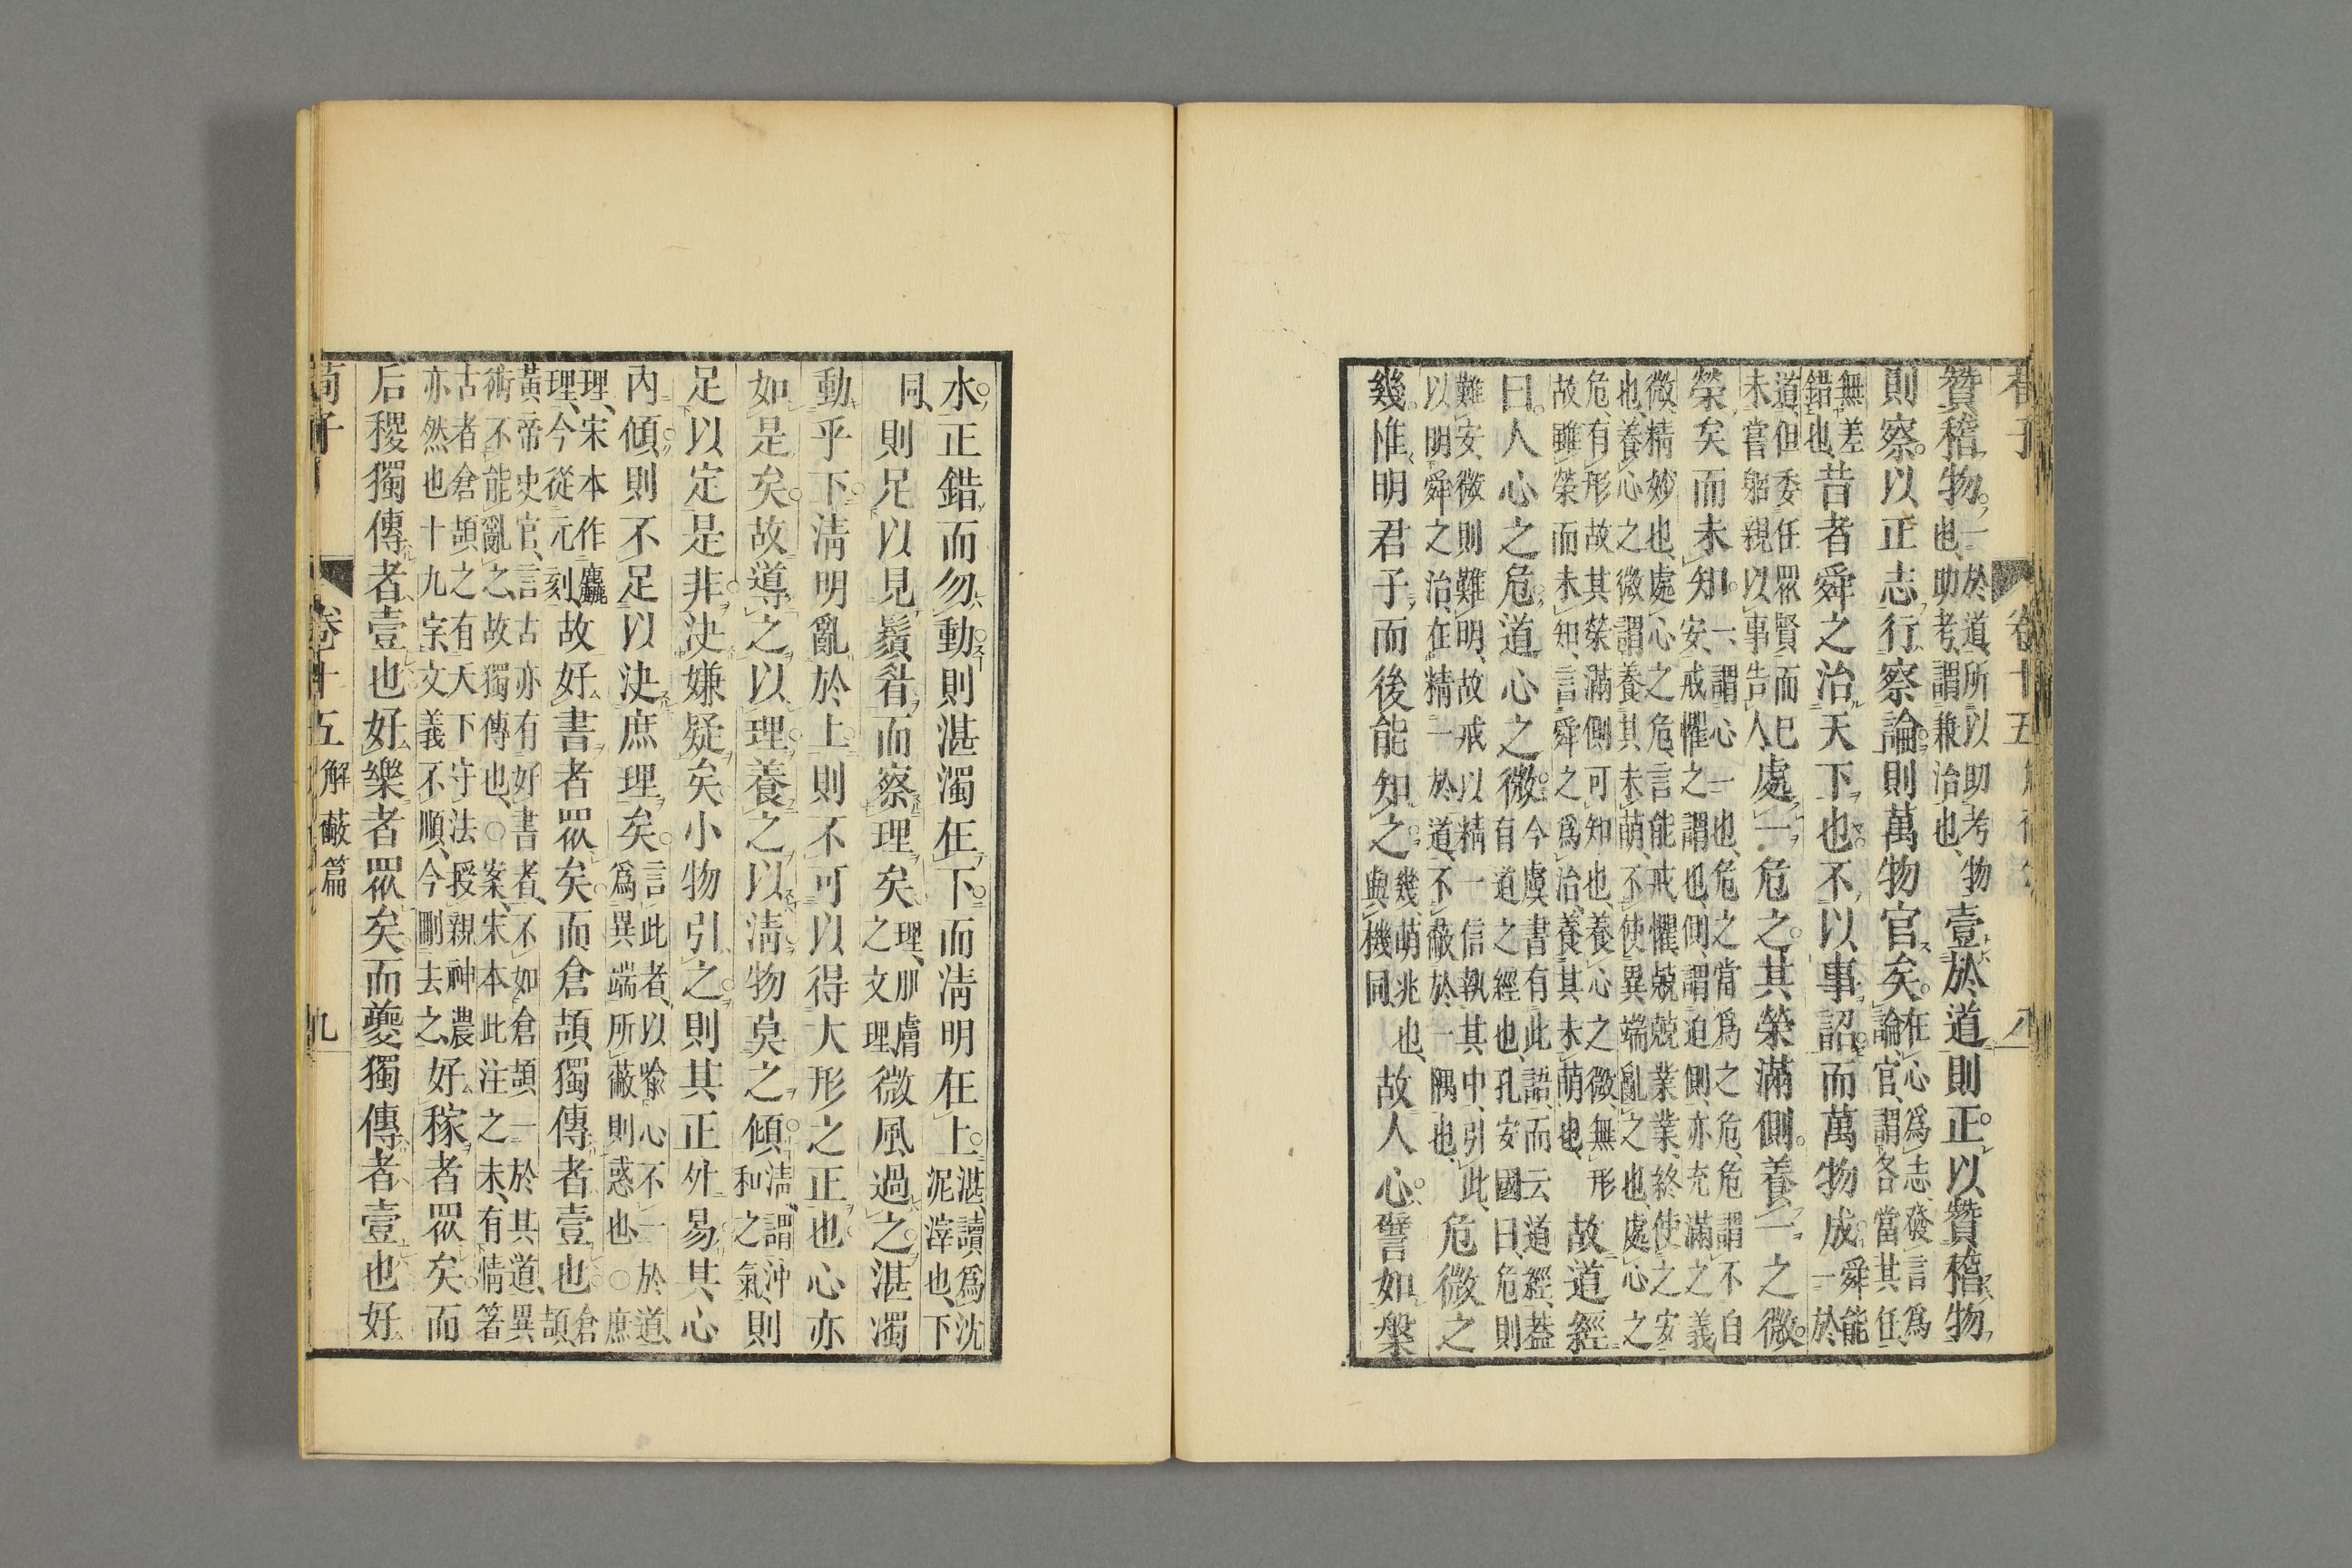 荀子　卷十五　八
贊稽物。一於道、所以助考物也、助考、謂兼治也、壹於道則正。以贊稽物
則察。以正志行察論。則萬物官矣。在心爲志、發言爲論、官、謂各當其任、
無差錯也、昔者舜之治天下也。不以事詔。而萬物成。舜能一於
道、但委任眾賢而已、未嘗躬親以事告人、處一危之。其榮滿側。養一之微。
榮矣而未知。一、謂心一也、危之當爲之危、危謂不自安、戒懼之謂也、側、謂迫側、亦充滿之義、
微、精妙也、處心之危、言能戒懼兢兢業業、終使之安也、養心之微、謂養其未萌、不使異端亂之也、處心之
危、有形故其榮滿側可知也、養心之微、無形故雖榮而未知、言舜之爲治、養其未萌也、故道經
曰。人心之危。道心之微。今虞書有此語、而云道經、蓋有道之經也、孔安國曰、危則
難安、微則難明、故戒以精一信執其中、引此、以明舜之治、在精一於道、不蔽於一隅也、危微之
幾。惟明君子而後能知之。幾、萌兆也、與機同、故人心。譬如槃
水。正錯而勿動。則湛濁在下。而淸明在上。湛、讀爲沈泥滓也、下
同、則足以見鬚眉而察理矣。理、肌膚之文理、微風過之。湛濁
動乎下。淸明亂於上。則不可以得大形之正也。心亦
如是矣。故導之以理。養之以淸。物莫之傾。淸、謂沖和之氣、則
足以定是非。決嫌疑矣。小物引之。則其正外易。其心
內傾。則不足以決庶理矣。言此者、以喩心不一於道、爲異端所蔽則惑也○庶
理、宋本作麤理、今從元刻、故好書者眾矣。而倉頡獨傳者壹也。倉頡
黃帝史官、言古亦有好書者、不如倉頡一於其道、異術不能亂之、故獨傳也、○案、宋本此注之末、有情箸
古者倉頡之有天下守法授親神農亦然也十九字、文義不順、今刪去之、好稼者眾矣。而
后稷獨傳者壹也。好樂者眾矣。而夔獨傳者壹也。好
荀子　卷十五　解蔽篇　九